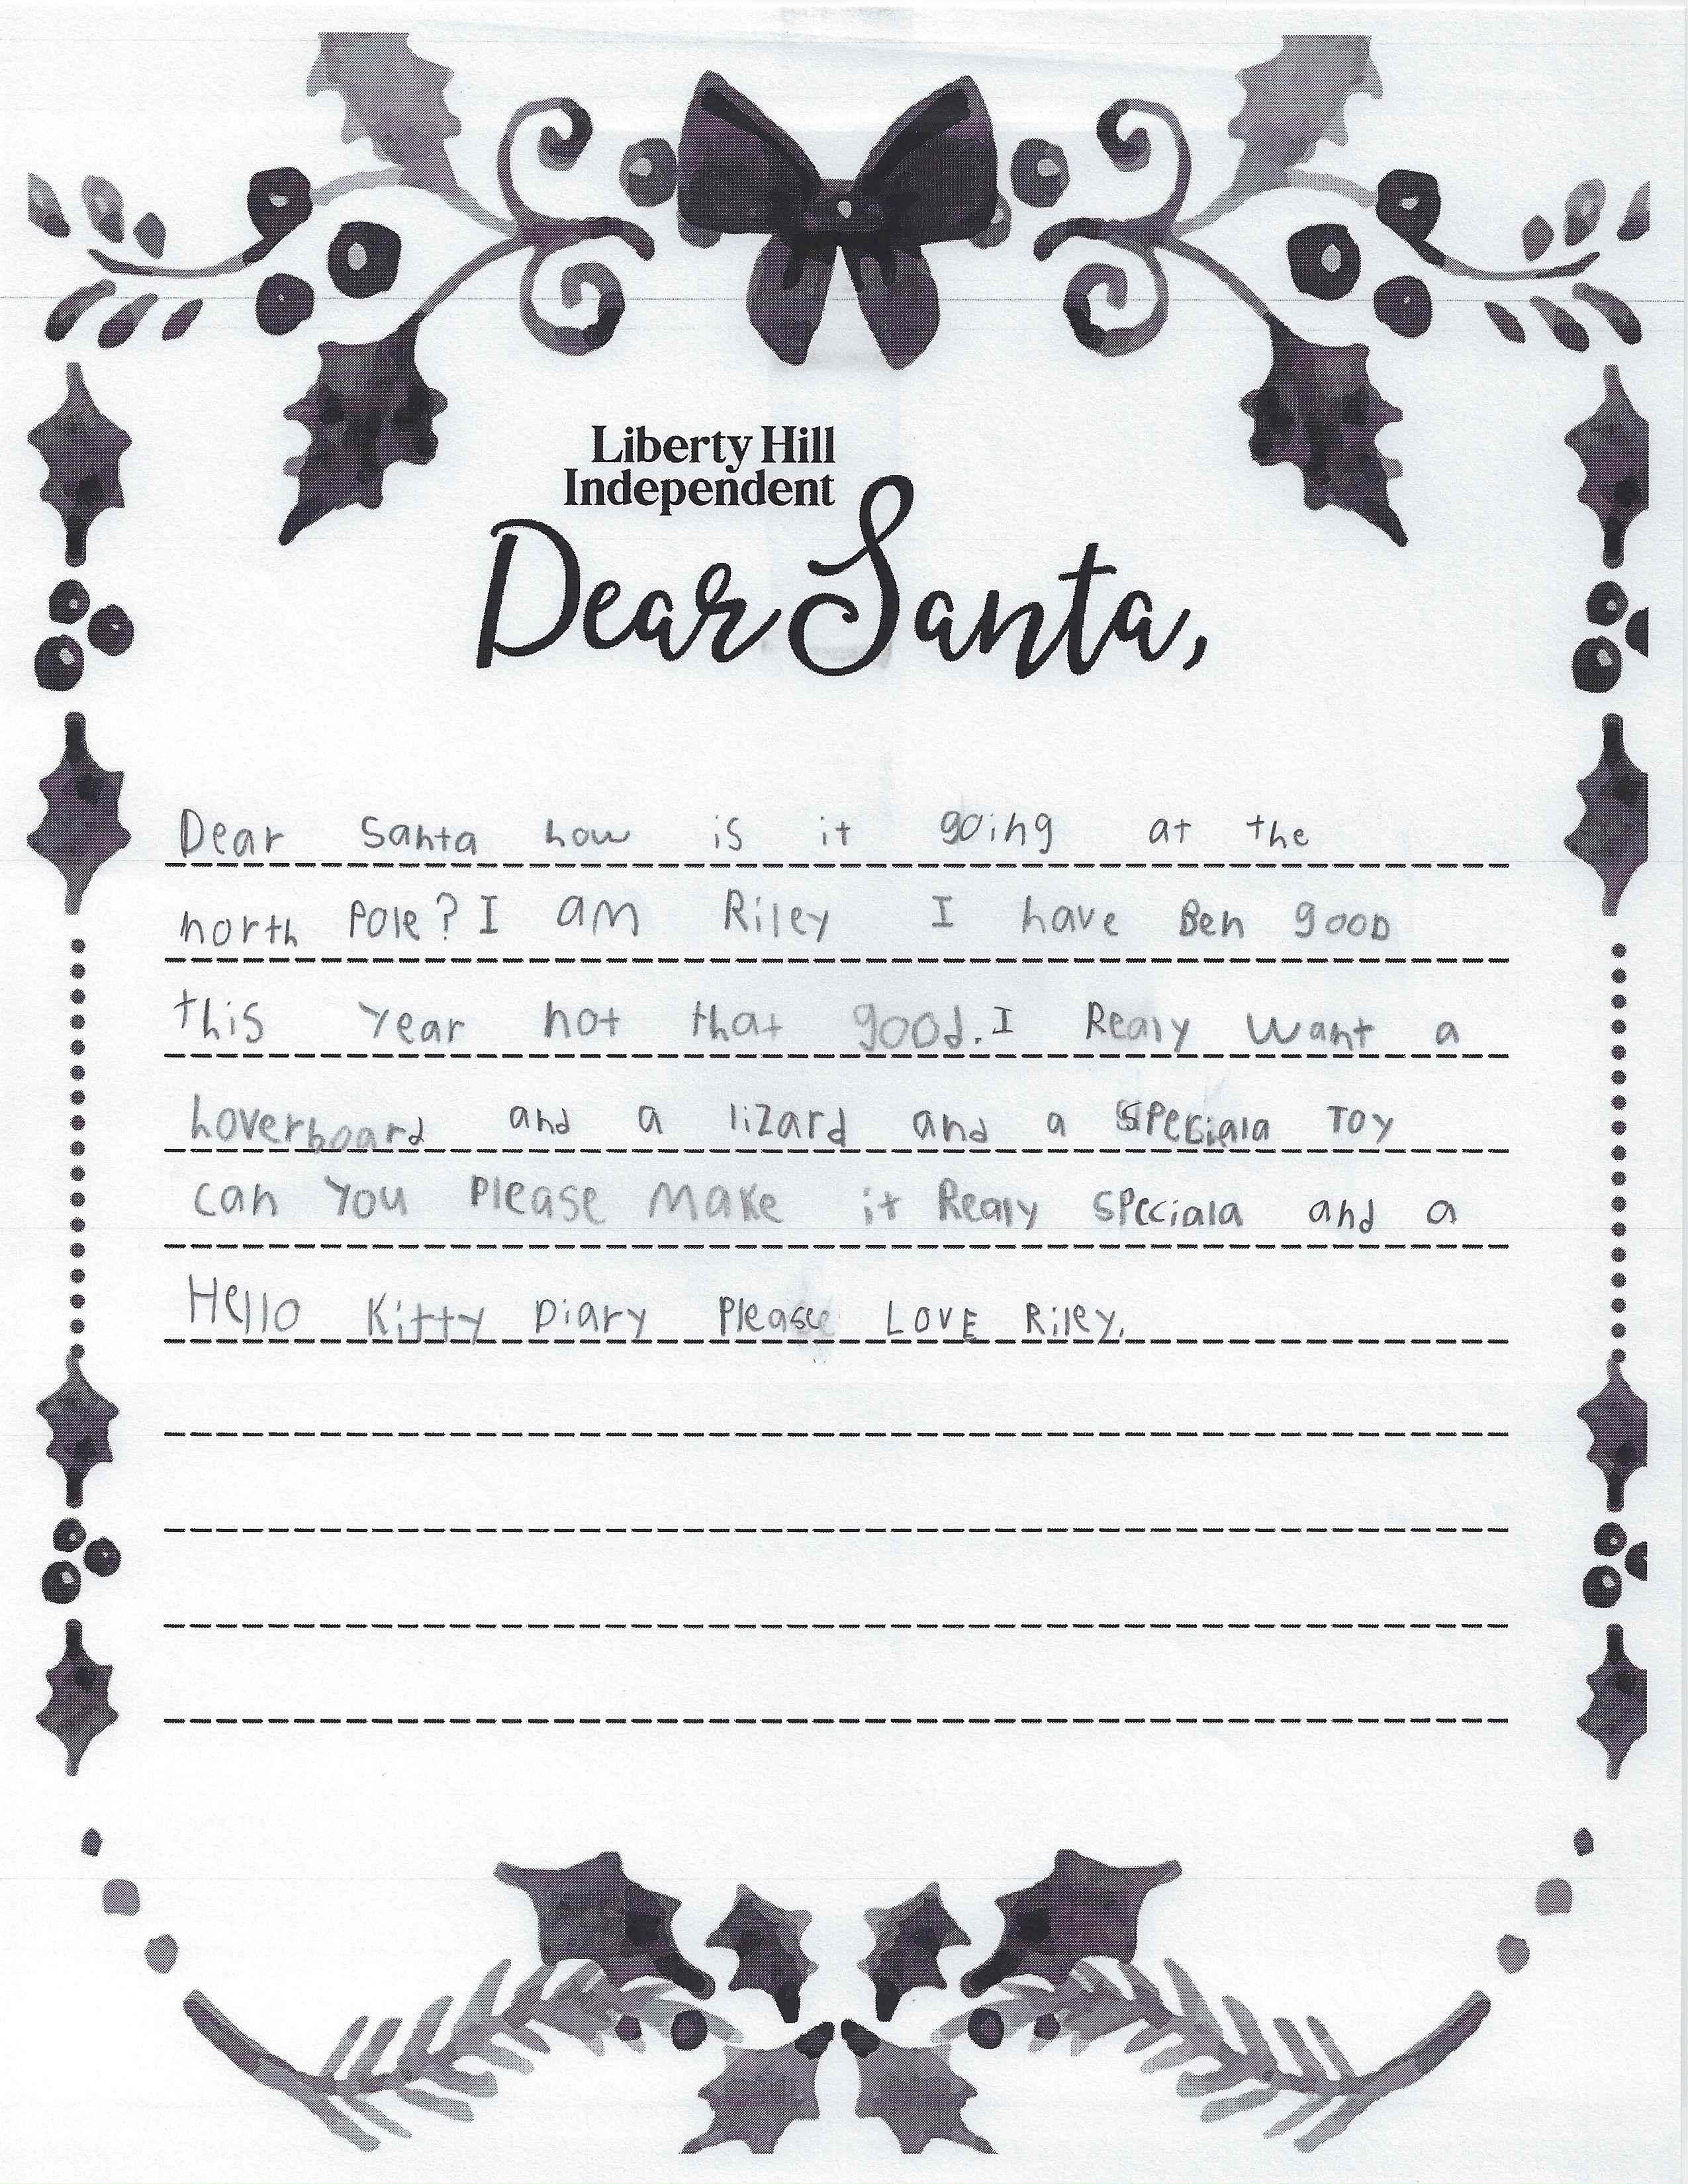 Liberty Hill
Independent
Dear Santa,
Dear Santa how is it going at the
north Pole? I am Riley I have Ben gooD
this Year not that good. I Realy want a
hoverboard and a lizard and a speciala Toy
can You Please Make it Realy speciala and a
Hello Kitty Diary Please LOVE Riley.